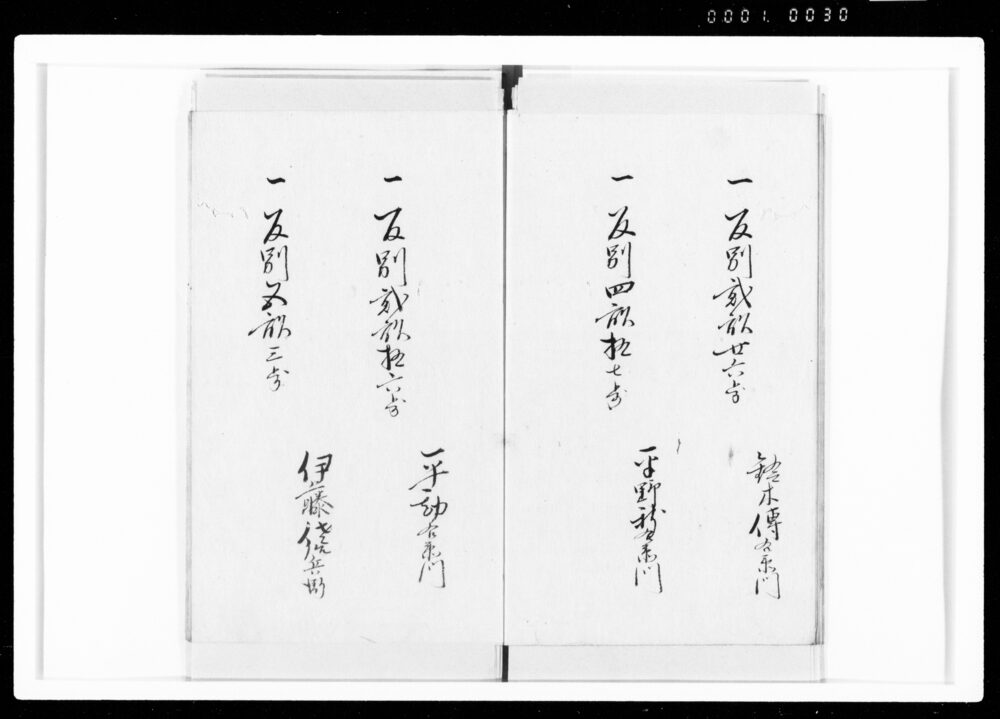 0001. 0030
一 反別弐畝廿六歩
鈴木傳右衛門
一 反別四畝拾七歩
平野 右衛門
一 反別弐畝拾六歩
平 右衛門
一 反別五畝三歩
伊藤 兵衛